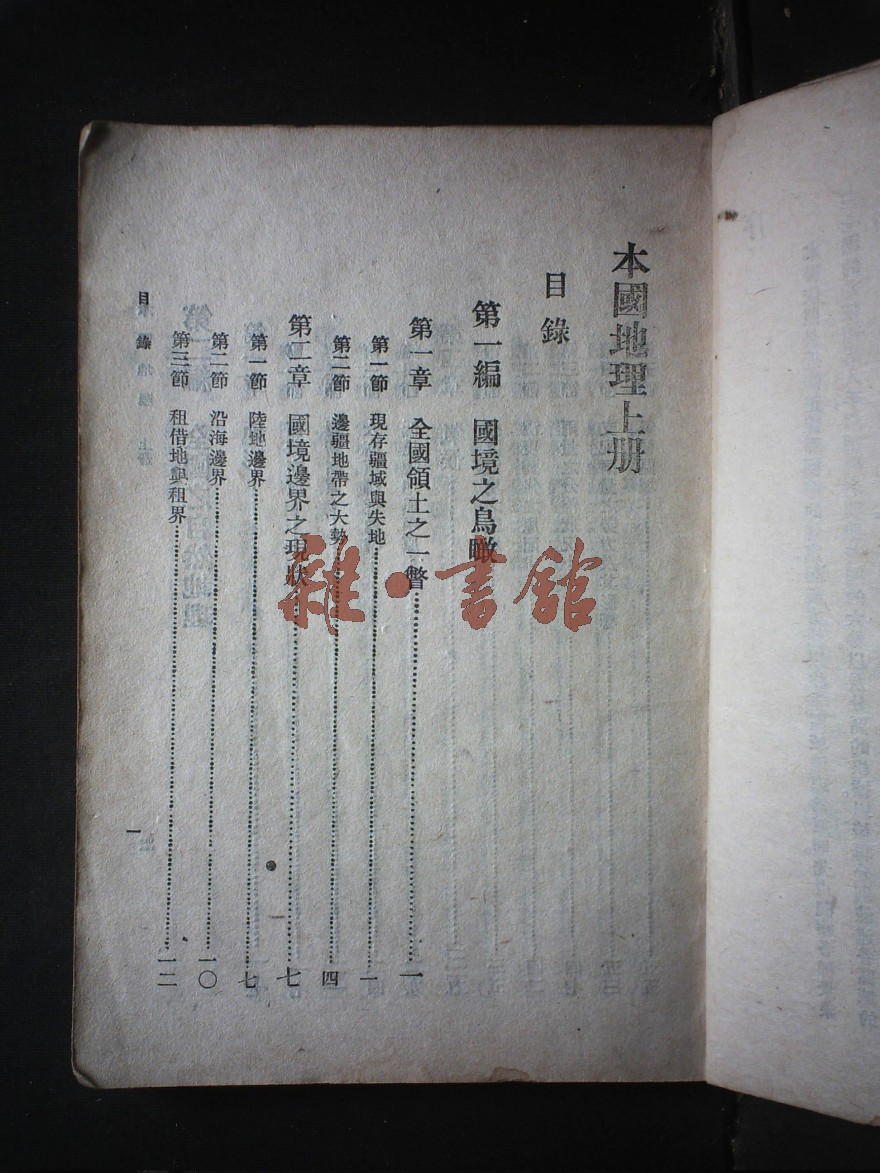 本國地理上册
目錄
第一編 國境之鳥瞰
第一章 全國領土之一瞥 一
第一節 現存疆域與失地 一
第二節 邊疆地帶之大勢 四
第二章 國境邊界之現狀 七
第一節 陸地邊界 七
第二節 沿海邊界 一〇
第三節 租借地與租界 一二
目錄
一
雜·書館